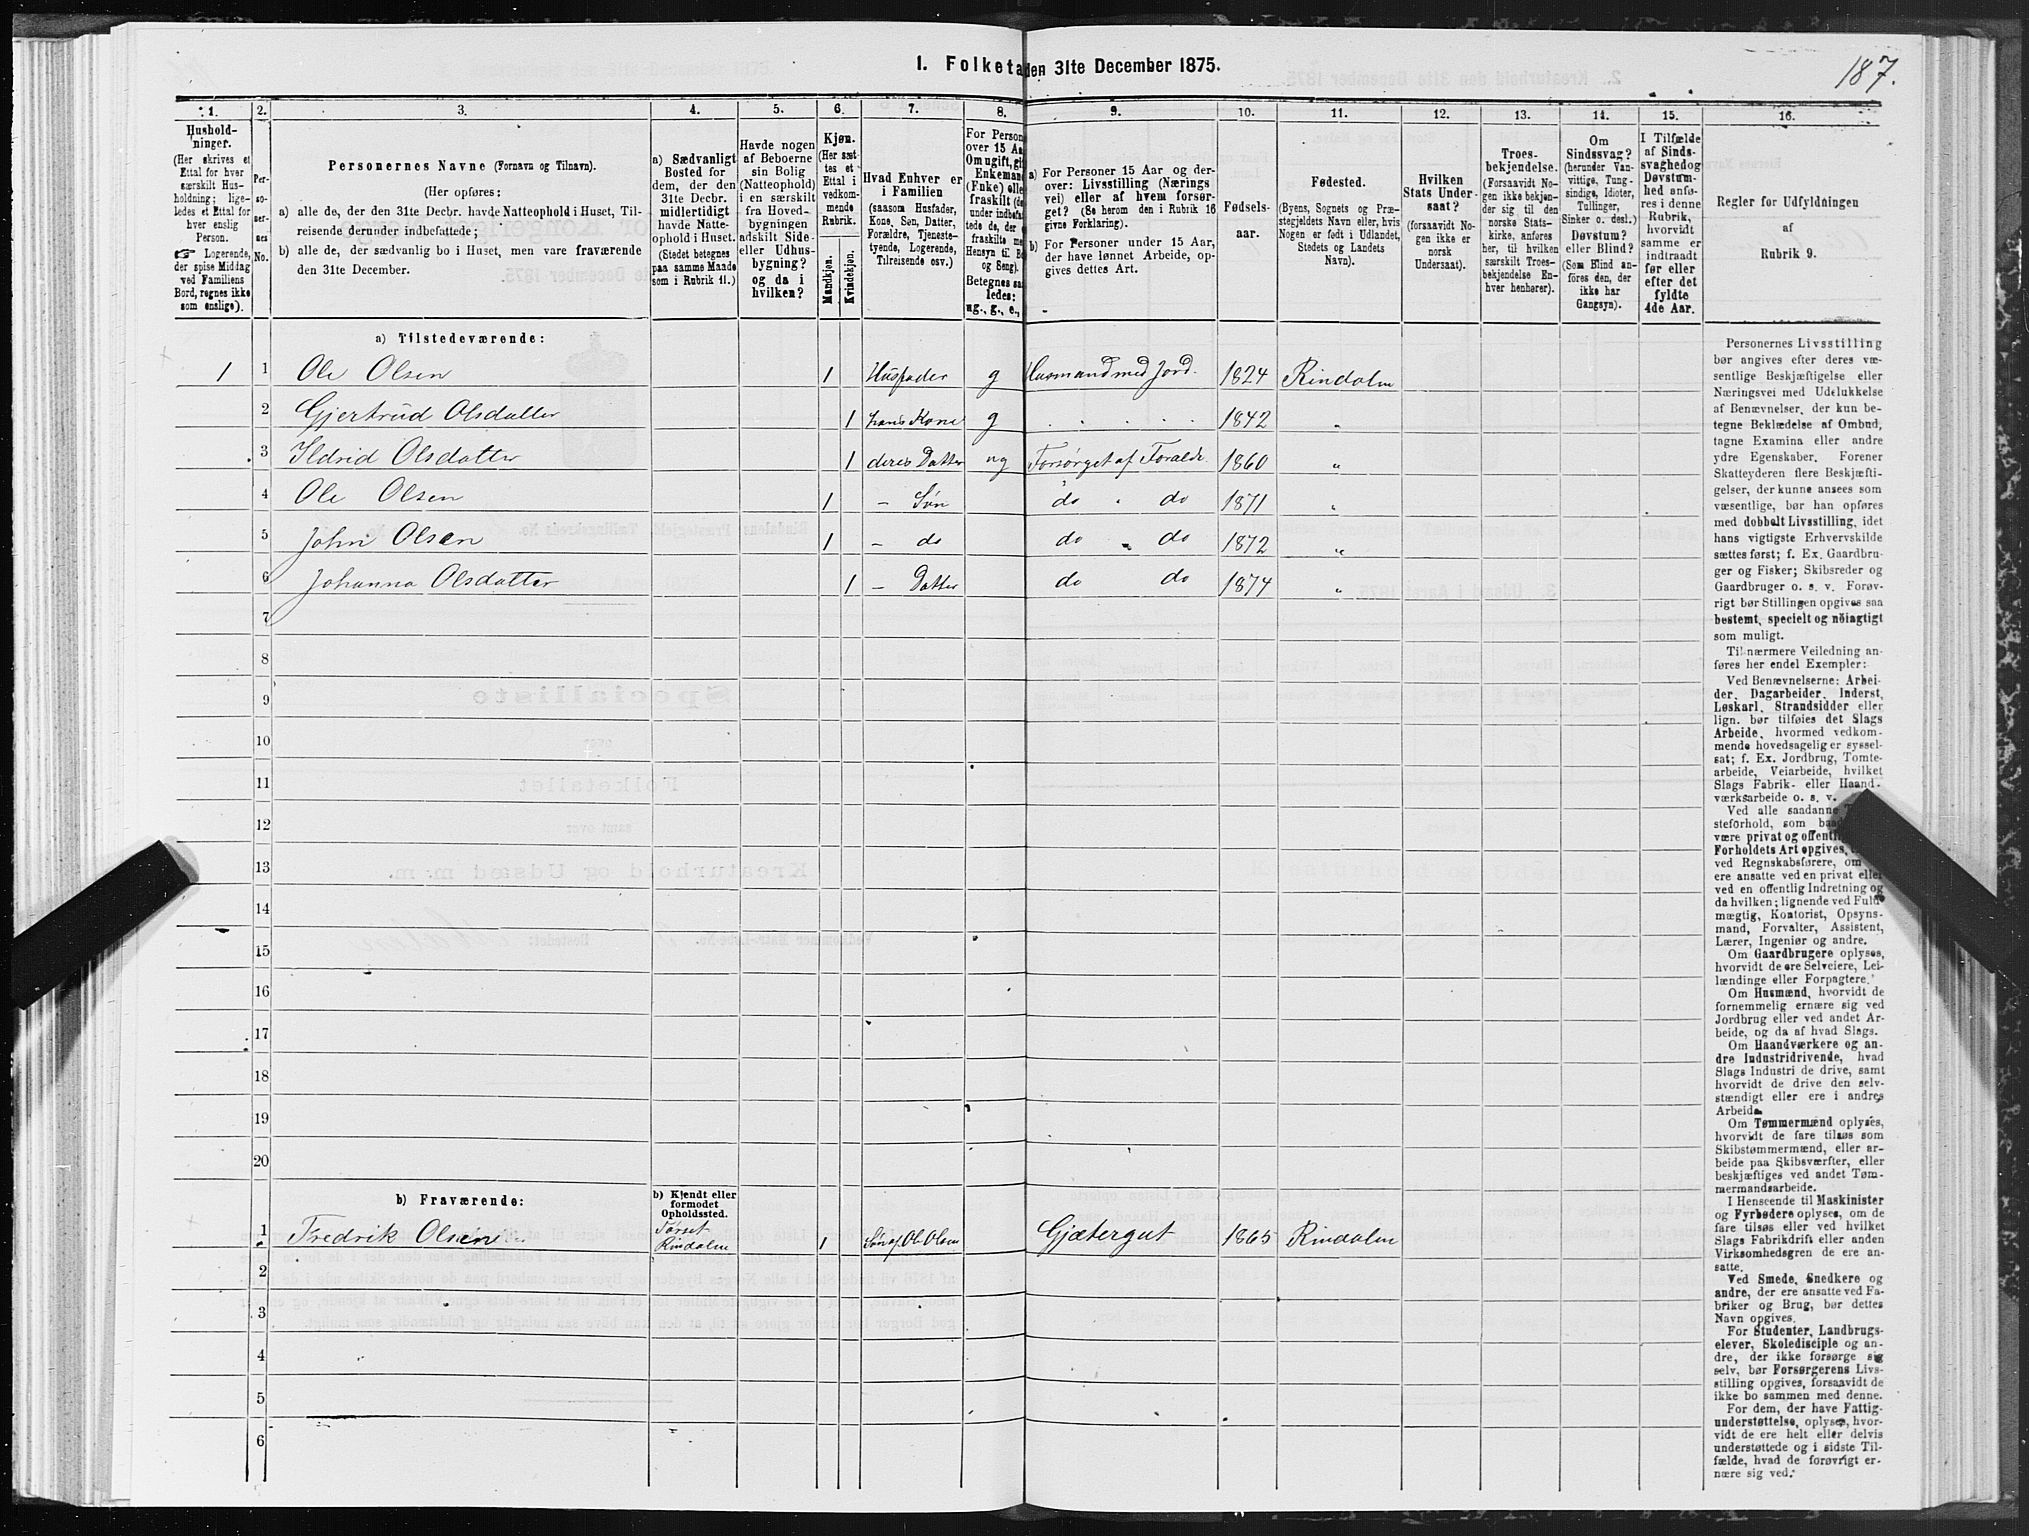 187.
1. Folketa den 31te December 1875.
1. 2. 3. 4. 5. 6. 7. 8. 9. 10. 11. 12. 13. 14. 15. 16.
Hushold-
ninger.
(Her skrives et
Ettal for hver
særskilt Hus-
holdning; lige-
ledes et Ettal for
hver enslig
Person.
☞ Logerende,
der spise Middag
ved Familiens
Bord, regnes ikke
som enslige).
Per-
so-
ner-
nes
No.
Personernes Navne (Fornavn og Tilnavn).
(Her opføres:
a) alle de, der den 31te Decbr. havde Natteophold i Huset, Til-
reisende derunder indbefattede;
b) alle de, der sædvanlig bo i Huset, men vare fraværende
den 31te December.
a) Sædvanligt
Bosted for
dem, der den
31te Decbr.
midlertidigt
havde Natte-
ophold i Huset.
(Stedet betegnes
paa samme Maade
som i Rubrik 11.)
Havde nogen
af Beboerne
sin Bolig
(Natteophold)
i en særskilt
fra Hoved-
bygningen
adskilt Side-
eller Udhus-
bygning?
og da i
hvilken?
Kjøn.
(Her sæt-
tes et
Ettal i
vedkom-
mende
Rubrik.
Mandkjøn.
Kvindekjøn.
Hvad Enhver er
i Familien
(saasom Husfader,
Kone, Søn, Datter,
Forældre, Tjeneste-
tyende, Logerende,
Tilreisende osv.)
For Person
over 15 Aa
Om ugift, gi
Enkemand
(Fnke) elle
fraskilt (d
under indbefa
tede de, der
fraskilte m
Hensyn til B
og Seng).
Betegnes sa
ledes:
ug., g., e.,
a) For Personer 15 Aar og der-
over: Livsstilling (Nærings
vei) eller af hvem forsør-
get? (Se herom den i Rubrik 16
givne Forklaring).
b) For Personer under 15 Aar,
der have lønnet Arbeide, op-
gives dettes Art.
Fødsels-
aar.
Fødested.
(Byens, Sognets og Præ-
stegjeldets Navn eller, hvis
Nogen er født i Udlandet,
Stedets og Landets
Navn).
Hvilken
Stats Under-
saat?
(forsaavidt No-
gen ikke er
norsk
Undersaat).
Troes-
bekjendelse.
(Forsaavidt No-
gen ikke bekjen-
der sig til den
norske Stats-
kirke, anføres
her, til hvilken
særskilt Troes-
bekjendelse En-
hver henhører).
Om
Sindssvag?
(herunder Van-
vittige, Tung-
sindige, Idioter,
Tullinger,
Sinker o. desl.)
Døvstum?
eller Blind?
(Som Blind an-
føres den, der
ikke har
Gangsyn).
I Tilfælde
af Sinds-
svaghed og
Døvstum-
hed anfø-
res i denne
Rubrik,
hvorvidt
samme er
indtraadt
før eller
efter det
fyldte
4de Aar.
Regler for Udfyldningen
af
Rubrik 9.
a) Tilstedeværende:
1 1 Ole Olsen 1 Husfader g Husmand med Jord. 1824 Rindalm
2 Gjertrud Olsdatter 1 hans Kone g . . . . . 1842 "
3 Ildrid Olsdatter 1 deres Datter ug Forsørget af Foralde. 1860 "
4 Ole Olsen 1 – Søn do " do 1871 "
5 John Olsen 1 – do do " do 1872 "
6 Johanna Olsdatter 1 – Datter do do 1874 "
7
8
9
10
11
12
13
14
15
16
17
18
19
20
b) Fraværende:
b) Kjendt eller
formodet
Opholdssted.
1 Fredrik Olsen Tørset Rindalm 1 Søn af Ole Olsen Gjætergut 1865 Rindalm
2
3
4
5
6
Personernes Livsstilling
bør angives efter deres væ-
sentlige Beskjæftigelse eller
Næringsvei med Udelukkelse
af Benævnelser, der kun be-
tegne Beklædelse af Ombud,
tagne Examina eller andre
ydre Egenskaber. Forener
Skatteyderen flere Beskjæfti-
gelser, der kunne ansees som
væsentlige, bør han opføres
med dobbelt Livsstilling, idet
hans vigtigste Erhvervskilde
sættes først; f. Ex. Gaardbru-
ger og Fisker; Skibsreder og
Gaardbruger o. s. v. Forøv-
rigt bør Stillingen opgives saa
bestemt, specielt og nøiagtigt
som muligt.
Til nærmere Veiledning an-
føres her endel Exempler:
Ved Benævnelserne: Arbei-
der, Dagarbeider, Inderst,
Løskarl, Strandsidder eller
lign. bør tilføies det Slags
Arbeide, hvormed vedkom-
mende hovedsagelig er syssel-
sat; f. Ex. Jordbrug, Tomte-
arbeide, Veiarbeide, hvilket
Slags Fabrik- eller Haand-
værksarbeide o. s. v.
Ved alle saadanne
steforhold, som
være privat og offent
Forholdets Art opgives,
ved Regnskabsførere, om
ere ansatte ved en privat eller
ved en offentlig Indretning og
da hvilken; lignende ved Fuld
mægtig, Kontorist, Opsyns-
mand, Forvalter, Assistent,
Lærer, Ingeniør og andre.
Om Gaardbrugere oplyses,
hvorvidt de ere Selveiere, Lei-
lændinge eller Forpagtere.
Om Husmænd, hvorvidt de
fornemmelig ernære sig ved
Jordbrug eller ved andet Ar-
beide, og da af hvad Slags.
Om Haandværkere og an-
dre Industridrivende, hvad
Slags Industri de drive, samt
hvorvidt de drive den selv-
stændigt eller ere i andres
Arbeide.
Om Tømmermænd oplyses,
hvorvidt de fare tilsøs som
Skibstømmermænd, eller ar-
beide paa Skibsværfter, eller
beskjæftiges ved andet Tøm-
mermandsarbeide.
I Henseende til Maskinister
og Fyrbødere oplyses, om de
fare tilsøs eller ved hvilket
Slags Fabrikdrift eller anden
Virksomhed de ere an-
satte.
Ved Smede, Snedkere og
andre, der ere ansatte ved Fa-
briker og Brug, bør dettes
Navn opgives.
For Studenter, Landbrugs-
elever, Skoledisciple og an-
dre, der ikke forsørge sig
selv, bør Forsørgerens Livs-
stilling opgives, forsaavidt de
ikke bo sammen med denne.
For dem, der have Fattig-
understøttelse, oplyses, hvor-
vidt de ere helt eller delvis
understøttede og i sidste Til-
fælde, hvad de forøvrigt er-
nære sig ved.